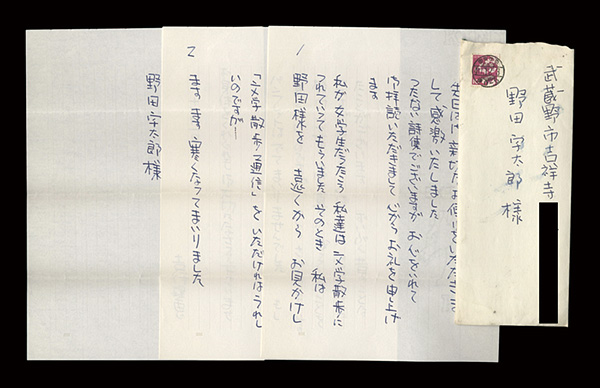 武蔵野市吉祥寺
野田宇太郎 様
先日はご親切なお便りをいただきま
して感激いたしました
つたない詩集でございますが お心をいれて
御拝読いただきまして 心から お礼を申上げ
ます
私が女学生だったころ 私達は文学散歩に
つれていってもらいました そのとき 私は
野田様を 遠くから お見かけし
1
「文学散歩通信」をいただければうれし
いのですがー
ます、ます、寒くなってまいりました
2
野田宇太郎様